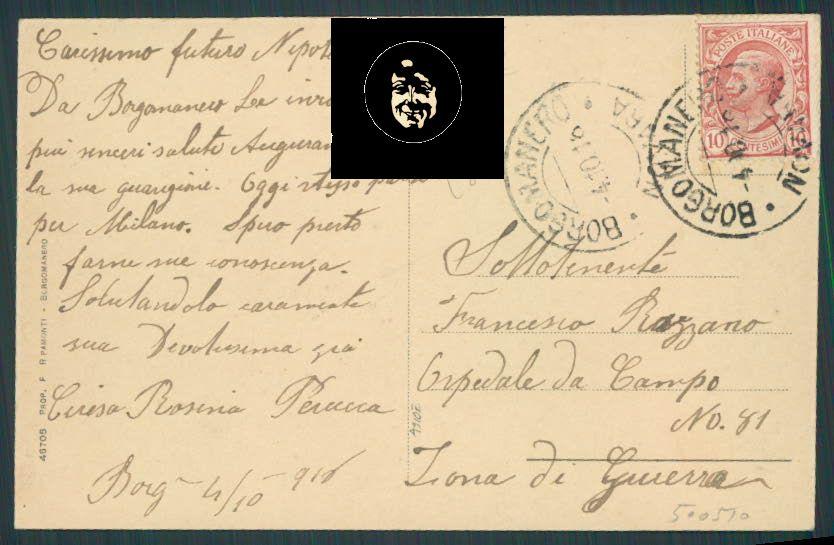 Carissimo futuro Nipote
Da Borgomanero Le
più sinceri saluti
la sua guarigione. Oggi stesso
per Milano. Spero presto
farne sue conoscenza.
Salutandolo caramente
sua Devotissima zia
Teresa Rosina Peracca
Borg 4/10 916
46705 PROP. F. RIPAMONTI - BORGOMANERO
POSTE ITALIANE
10 CENTESIMI 10
BORGOMANERO
4.10.16
NOVARA
BORGOMANERO
4.10.16
Sottotenente
Francesco Razzano
Ospedale da Campo
No. 81
Zona di Guerra
500510